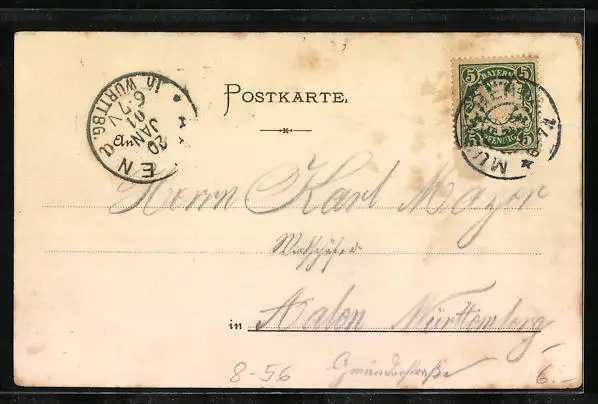 POSTKARTE.
BAYERN
5 5
PFENNIG
EN a
20
JAN
01
6-7 V.
in WÜRTTBG.
An
Herrn Karl Mayer
in Aalen Württemberg
Gmünderstraße
8-56
6.-